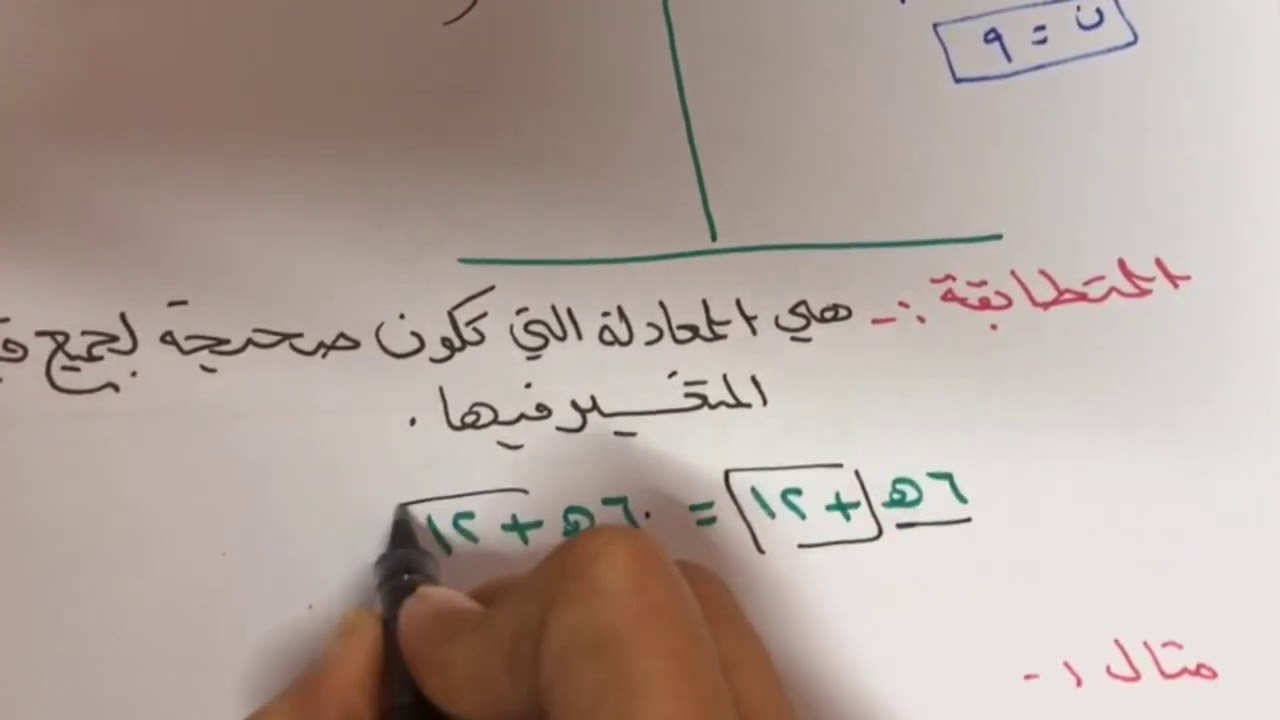 ن = ٩
المتطابقة :- هي المعادلة التي تكون صحيحة لجميع
المتغير فيها .
٦هـ + ١٢ = ٦هـ + ١٢
مثال ١-